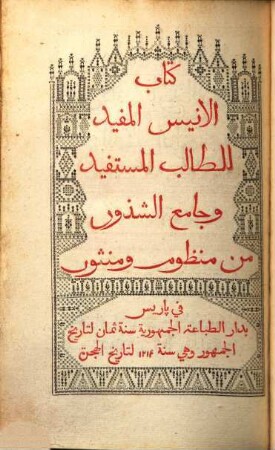 كتاب
الانيس المفيد
للطالب المستفيد
وجامع الشذور
من منظوم ومنثور
في باريس
بدار الطباعة الجمهورية سنة ثمان لتاريخ
الجمهور وهي سنة ١٢١٤ لتاريخ الهجرة